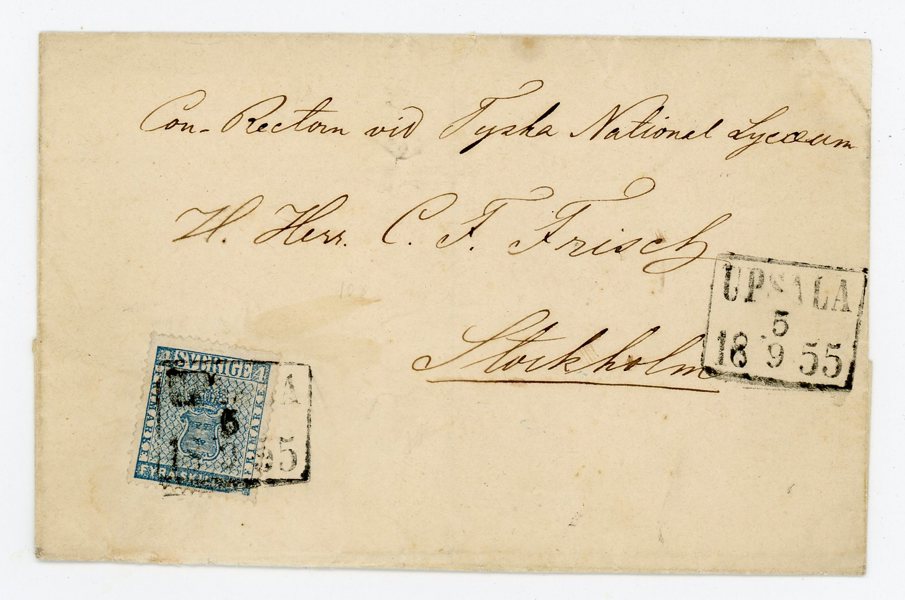 Con-Rectorn vid Tyska National Lycæum
H. Herr. C. F. Frisch
Stockholm
UPSALA
5
18 9 55
SVERIGE
FRIMARKE
5
55